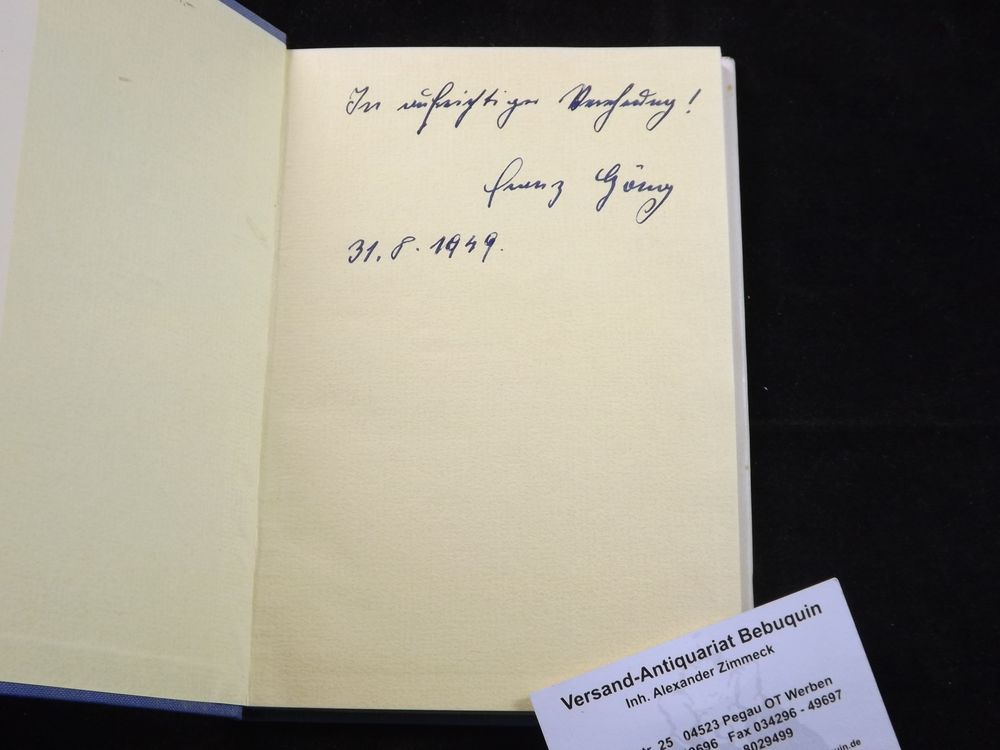 In aufrichtiger Verehrung!
Franz Göng
31.8.1949.
Versand-Antiquariat Bebuquin
Inh. Alexander Zimmeck
str. 25 04523 Pegau OT Werben
9696 Fax 034296 - 49697
8029499
quin.de